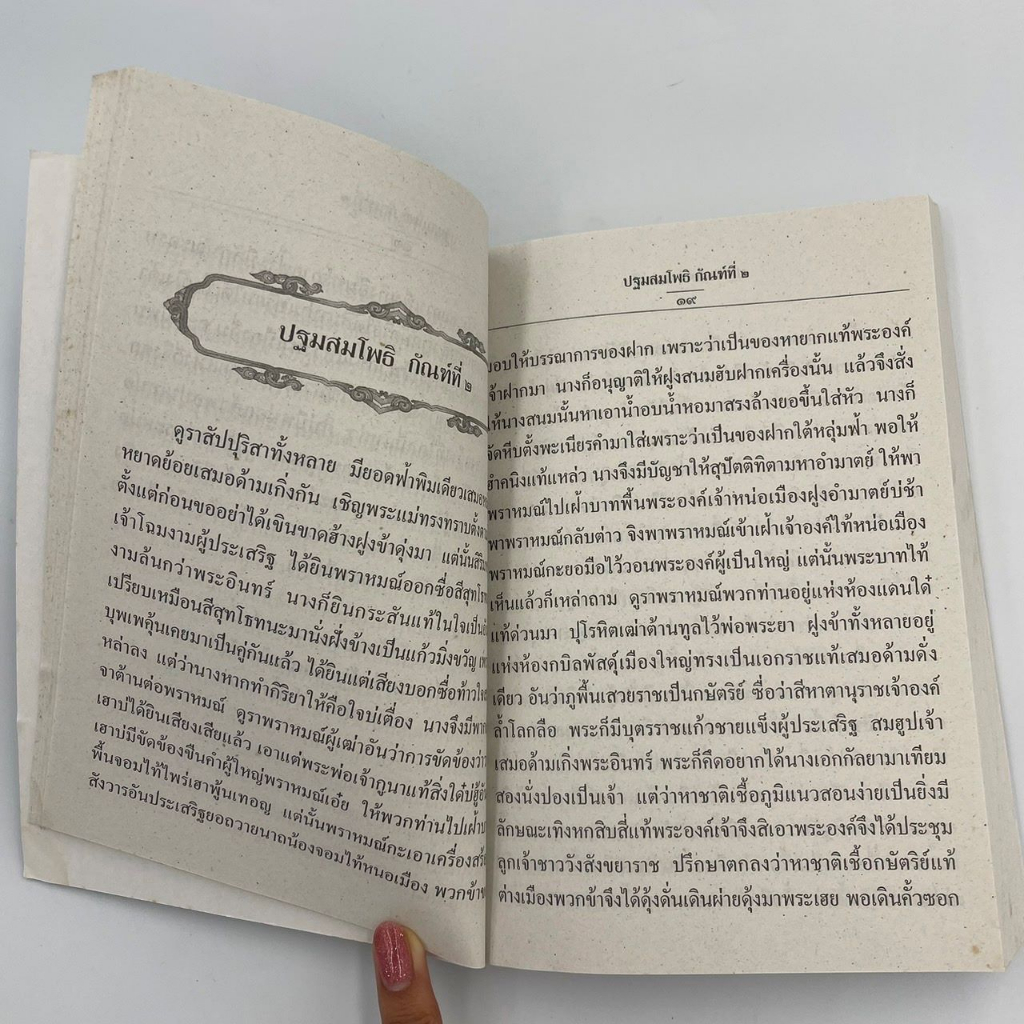 ปฐมสมโพธิ กัณฑ์ที่ ๒
ดูราสัปปุริสาทั้งหลาย มียอดฟ้าพิมเดียวเสมอ
หยาดย้อยเสมอด้ามเกิ่งกัน เชิญพระแม่ทรงทราบตั้ง
ตั้งแต่ก่อนขออย่าได้เขินขาดฮ้างฝูงข้าดุ่งมา แต่นั้นสิริม
เจ้าโฉมงามผู้ประเสริฐ ได้ยินพราหมณ์ออกชื่อสีสุทโธ
งามล้นกว่าพระอินทร์ นางก็ยินกระสันแท้ในใจเป็น
เปรียบเหมือนสีสุทโธทนะมานั่งฝั่งข้างเป็นแก้วมิ่งขวัญ
บุพเพคุ้นเคยมาเป็นคู่กันแล้ว ได้ยินแต่เสียงบอกชื่อท้าวใจ
หล่าลง แต่ว่านางหากทำกิริยาให้คือใจบ่เตื่อง นางจึงมี
จาต้านต่อพราหมณ์ ดูราพราหมณ์ผู้เฒ่าอันว่าการขัดข้องว่า
เฮาบ่ได้ยินเสียงเสียแล้ว เอาแต่พระพ่อเจ้ากูนาแท้สิ่งใด๋บ่ฮู้
เฮาบ่มีขัดข้องขืนคำผู้ใหญ่พราหมณ์เอ๋ย ให้พวกท่านไปเฝ้า
พื้นจอมไท้ไพร่เฮาพู้นเทอญ แต่นั้นพราหมณ์กะเอาเครื่อง
สังวารอันประเสริฐยอถวายนาถน้องจอมไท้หนอเมือง พวกข้า
ปฐมสมโพธิ กัณฑ์ที่ ๒
๑๙
มอบให้บรรณาการของฝาก เพราะว่าเป็นของหายากแท้พระองค์
เจ้าฝากมา นางก็อนุญาติให้ฝูงสนมฮับฝากเครื่องนั้น แล้วจึงสั่ง
ให้นางสนมนั้นหาเอาน้ำอบน้ำหอมมาสรงล้างยอขึ้นใส่หัว นางก็
จัดหีบตั้งพะเนียรคำมาใส่เพราะว่าเป็นของฝากใต้หลุ่มฟ้า พอให้
ฮำคนิงแท้แหล่ว นางจึงมีบัญชาให้สุปัตติทิตามหาอำมาตย์ ให้พา
พราหมณ์ไปเฝ้าบาทพื้นพระองค์เจ้าหน่อเมืองฝูงอำมาตย์บ่ช้า
พาพราหมณ์กลับต่าว จิงพาพราหมณ์เข้าเฝ้าเจ้าองค์ไท้หน่อเมือง
พราหมณ์กะยอมือไว้วอนพระองค์ผู้เป็นใหญ่ แต่นั้นพระบาทไท้
เห็นแล้วก็เหล่าถาม ดูราพราหมณ์พวกท่านอยู่แห่งห้องแดนใด๋
แท้ด่วนมา ปุโรหิตเฒ่าต้านทูลไว้พ่อพระยา ฝูงข้าทั้งหลายอยู่
แห่งห้องกบิลพัสดุ์เมืองใหญ่ทรงเป็นเอกราชแท้เสมอด้ามดั่ง
เดียว อันว่าภูพื้นเสวยราชเป็นกษัตริย์ ชื่อว่าสีหาตานุราชเจ้าองค์
ล้ำโลกลือ พระก็มีบุตรราชแก้วชายแข็งผู้ประเสริฐ สมฮูปเจ้า
เสมอด้ามเกิ่งพระอินทร์ พระก็คึดอยากได้นางเอกกัลยามาเทียม
สองนั่งปองเป็นเจ้า แต่ว่าหาชาติเชื้อภูมิแนวสอนง่ายเป็นยิ่งมี
ลักษณะเทิงหกสิบสี่แท้พระองค์เจ้าจึงสิเอาพระองค์จึงได้ประชุม
ลูกเจ้าชาววังสังขยาราช ปรึกษาตกลงว่าหาชาติเชื้อกษัตริย์แท้
ต่างเมืองพวกข้าจึงได้ดุ้งดั่นเดินผ่ายดุ้งมาพระเฮย พอเดินคั้วซอก